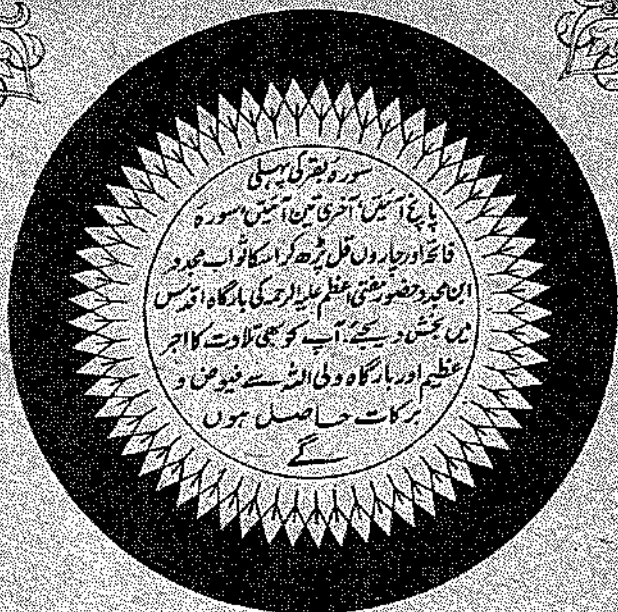 سورہ بقر کی پہلی
پانچ آئتیں، آخری تین آئتیں، سورۂ
فاتحہ اور چاروں قل پڑھ کر اسکا ثواب مجدد
ابن مجدد حضور مفتی اعظم علیہ الرحمہ کی بارگاہ اقدس
میں بخش دیجئے، آپ کو بھی تلاوت کا اجر
عظیم اور بارگاہ ولی اللہ سے فیوض و
برکات حاصل ہوں
گے